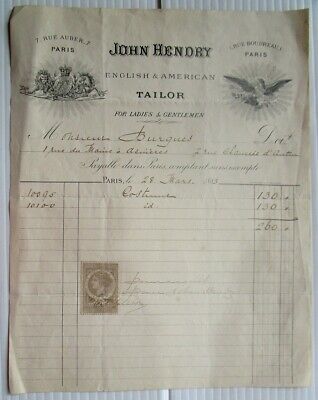 7, RUE AUBER, 7
PARIS
JOHN HENDRY
1, RUE BOUDREAU, 1
PARIS
ENGLISH & AMERICAN
TAILOR
FOR LADIES & GENTLEMEN
Monsieur Burgues Doit
1 rue du à Asnières 2 rue Chaussée d'Antin
Payable dans Paris, comptant sans escompte
PARIS, le 28 Mars
10095 Costume 130
10100 id 130
260